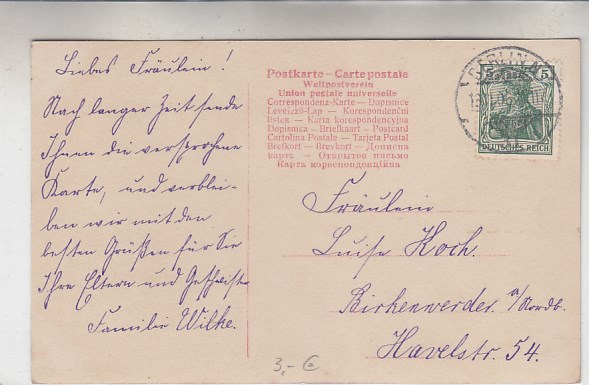 Liebes Fräulein!
Nach langer Zeit sende
Ihnen die versprochene
Karte, und verblei-
ben wir mit den
besten Grüßen für Sie
Ihre Eltern und Geschwister
Familie Wilke.
Postkarte — Carte postale
Weltpostverein
Union postale universelle
Correspondenz-Karte — Dopisnice
Levelező-Lap — Korespondenční
lístek — Karta korespondencyjna
Dopisnica — Briefkaart — Postcard
Cartolina Postale — Tarjeta Postal
Brefkort — Brevkort — Дописна
карта. — Открытое письмо
Карта кореспонденційна
BERLIN
5 5
DEUTSCHES REICH
Fräulein
Luise Koch.
Birkenwerder a/Nordb.
Havelstr. 54.
3,- €